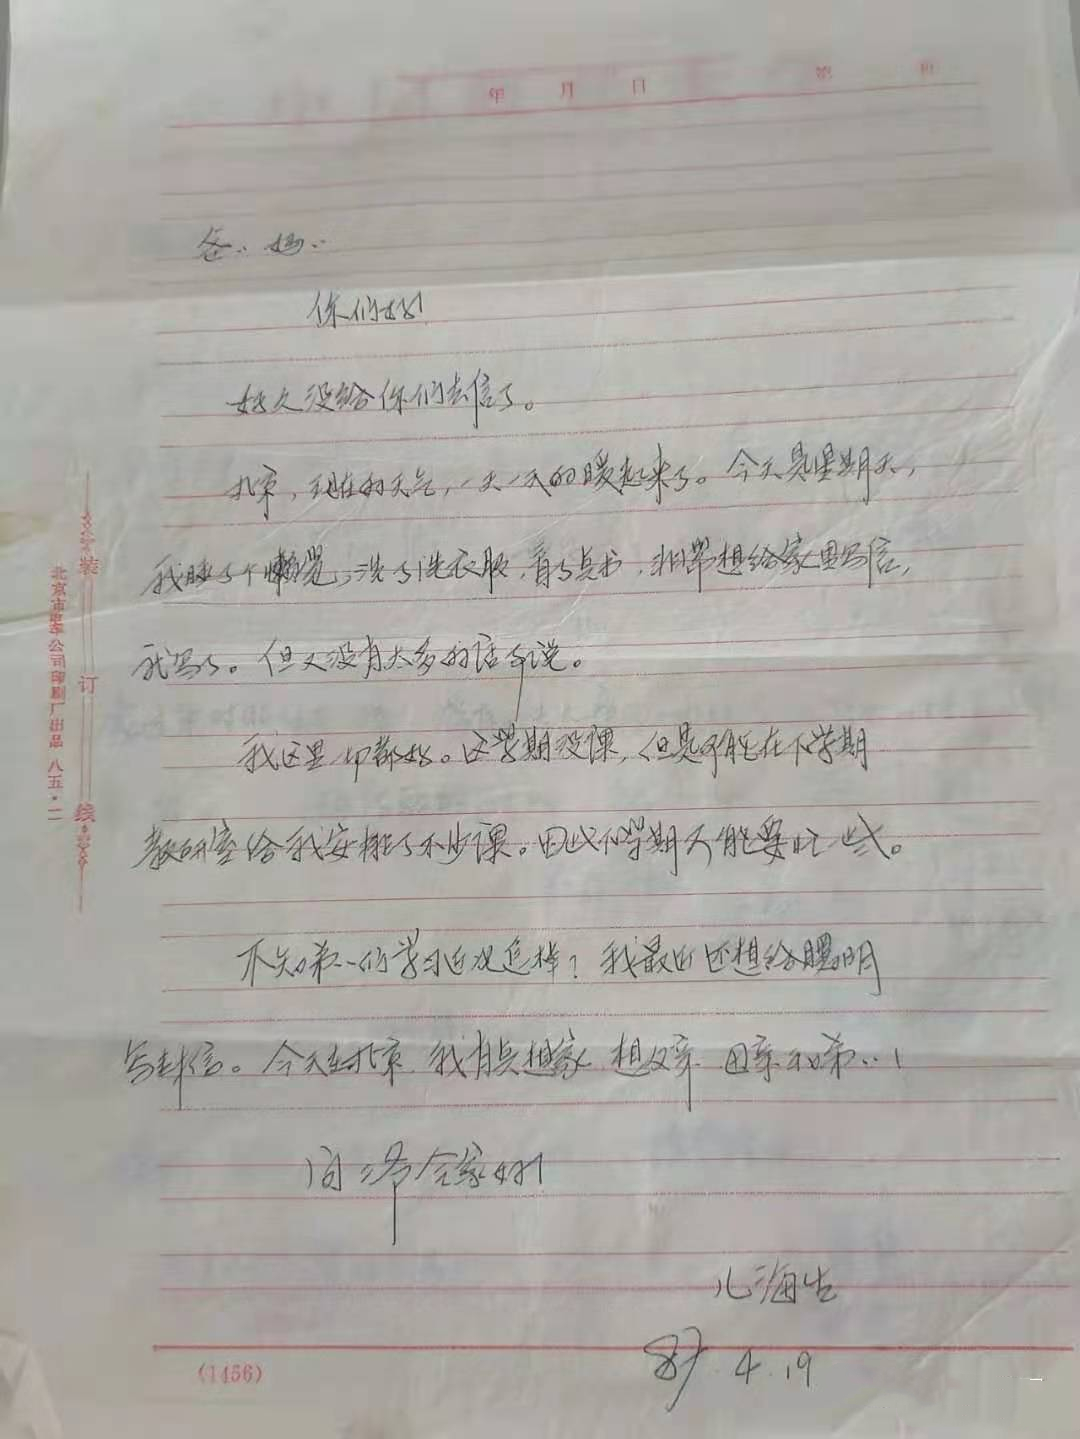 年 月 日 第 页
爸:妈:
你们好!
好久没给你们去信了。
北京,现在的天气,一天一天的暖起来了。今天是星期天,
我睡了个懒觉,洗了洗衣服,看了点书,非常想给家里写信,
就写了。但又没有太多的话可说。
我这里一切都好。这学期没课,但是可能在下学期
教研室给我安排了不少课。因此下学期可能要忙些。
不知弟弟们学习近况怎样?我最近还想给
写封信。今天在北京,我有点想家,想父亲、母亲和弟弟!
问 全家好!
儿海生
87.4.19
(1456)
装订线
北京市电车公司印刷厂出品 八五·二